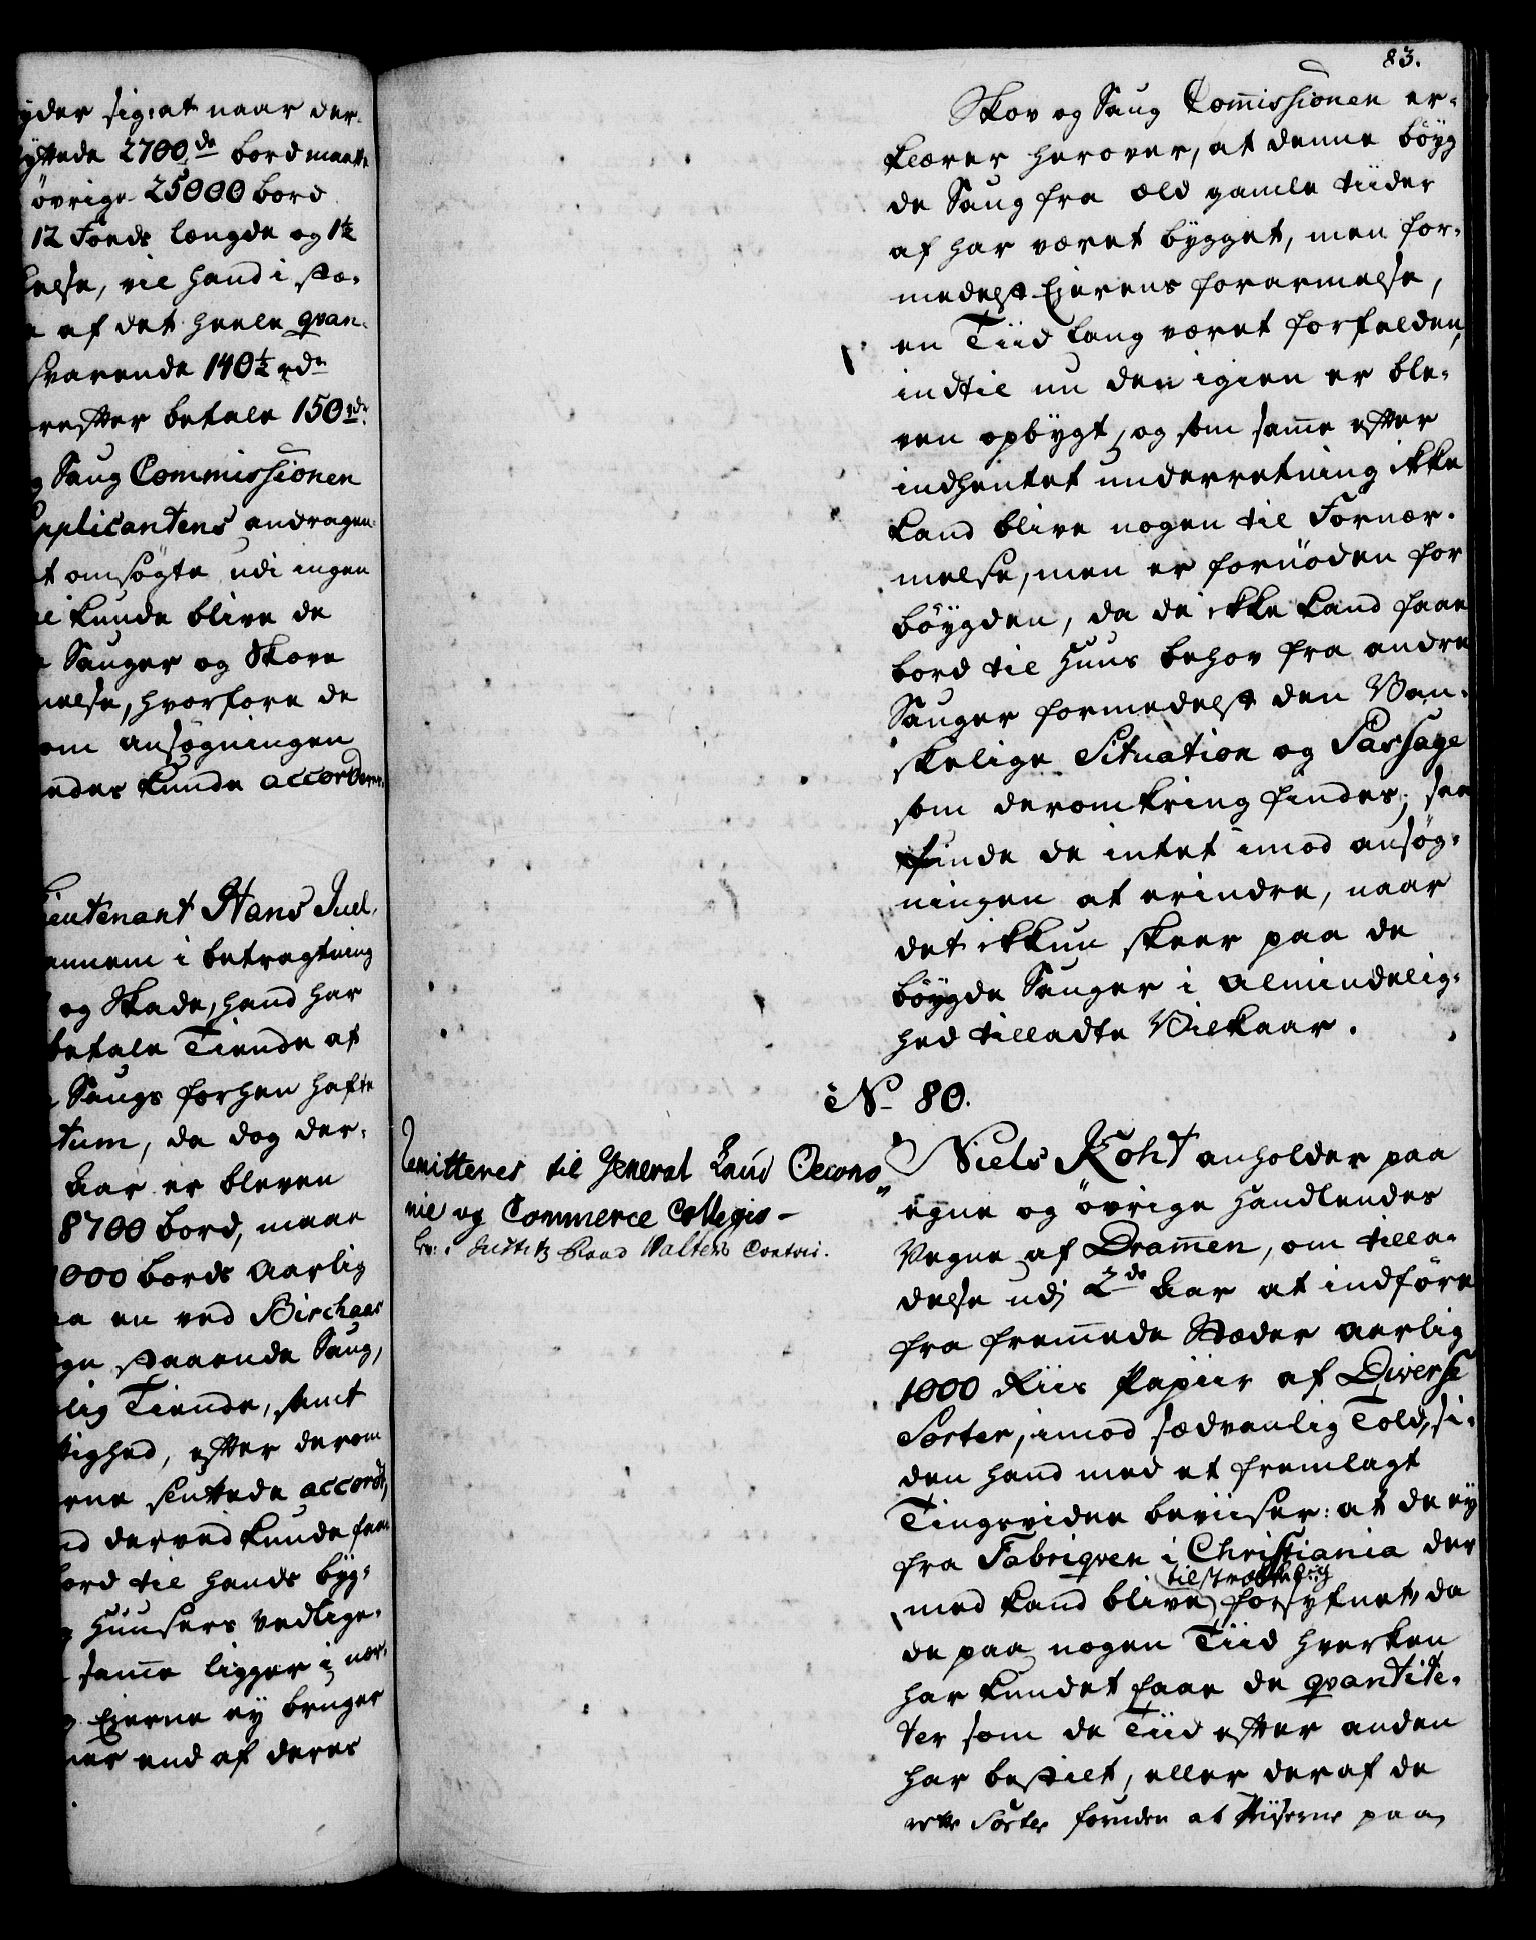 yder sig: at naar der-
yttede 2700 de bord maatte
övrige 25000 bord
12 Foeds længde og 1½
else, vil hand i stæ-
af det heele qvan-
svarende 140½ rdr
refter betale 150 rdr.
Saug Commissionen
pplicantens andragen-
t omsøgte udi ingen
kunde blive de
Sauger og Skove
melse, hvorfore de
om ansøgningen
edes kunde accorderes.
Lieutenant Hans Juel,
annem i betragtning
og Skade, hand har
betale Tiende af
Saugs forhen hafte
tum, da dog der-
Aar er bleven
8700 bord, maae
1000 bords Aarlig
aa en ved Birchaas
gn staaende Saug,
lig Tiende, samt
tighed, efter derom
erne sluttede accordt,
nd derved kunde faae
bord til hands byg-
Huusers Vedlige-
samme ligger i nær-
Ejerne ey bruger
mer end af deres
83.
Skov og Saug Commissionen er-
klærer herover, at denne böyg
de Saug fra old gamle tiider
af har været bygget, men for-
medelst Ejerens forarmelse,
en Tiid lang været forfalden,
indtil nu den igien er ble-
ven opbygt, og som samme efter
indhentet underretning ikke
kand blive nogen til Fornær-
melse, men er fornöden for
böygden, da de ikke kand faae
bord til Huus behov fra andre
Sauger formedelst den Van-
skelige Situation og Passage
som deromkring findes; saa
finde de intet imod ansøg-
ningen at erindre, naar
det ikkun skeer paa de
böygde Sauger i almindelig-
hed tilladte Vilkaar.
No 80.
Remitteres til General Land Oecono-
mie og Commerce Collegio -
lev: i Justitz Raad Walters Contoir.
Niels Koht anholder paa
egne og övrige Handlendes
Vegne af Drammen, om tilla-
delse udj 2de Aar at indføre
fra fremmede Stæder aarlig
1000 Riis Papiir af Diverse
Sorter, imod sædvanlig Told, si-
den hand med et fremlagt
Tingsvidne beviiser: at de ey
fra Fabriqven i Christiania der
tilstrækkelig
med kand blive forsyknet, da
de paa nogen Tiid hverken
har kundet faae de qvantite-
ter som de Tiid efter anden
har bestilt, eller deraf de
rette Sorter foruden at Priiserne paa